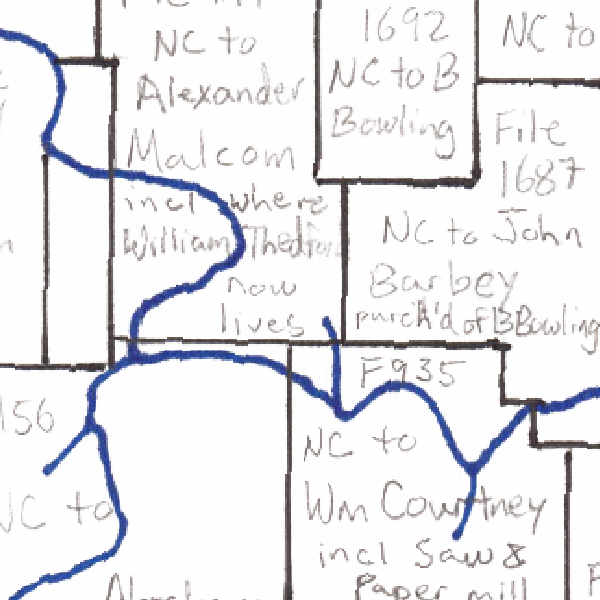 NC to
Alexander
Malcom
incl where
William Thedford
now
lives
1692
NC to B
Bowling
NC to
File
1687
NC to John
Barbey
purch'd of B Bowling
F935
NC to
Wm Courtney
incl Saw &
Paper mill
156
NC to